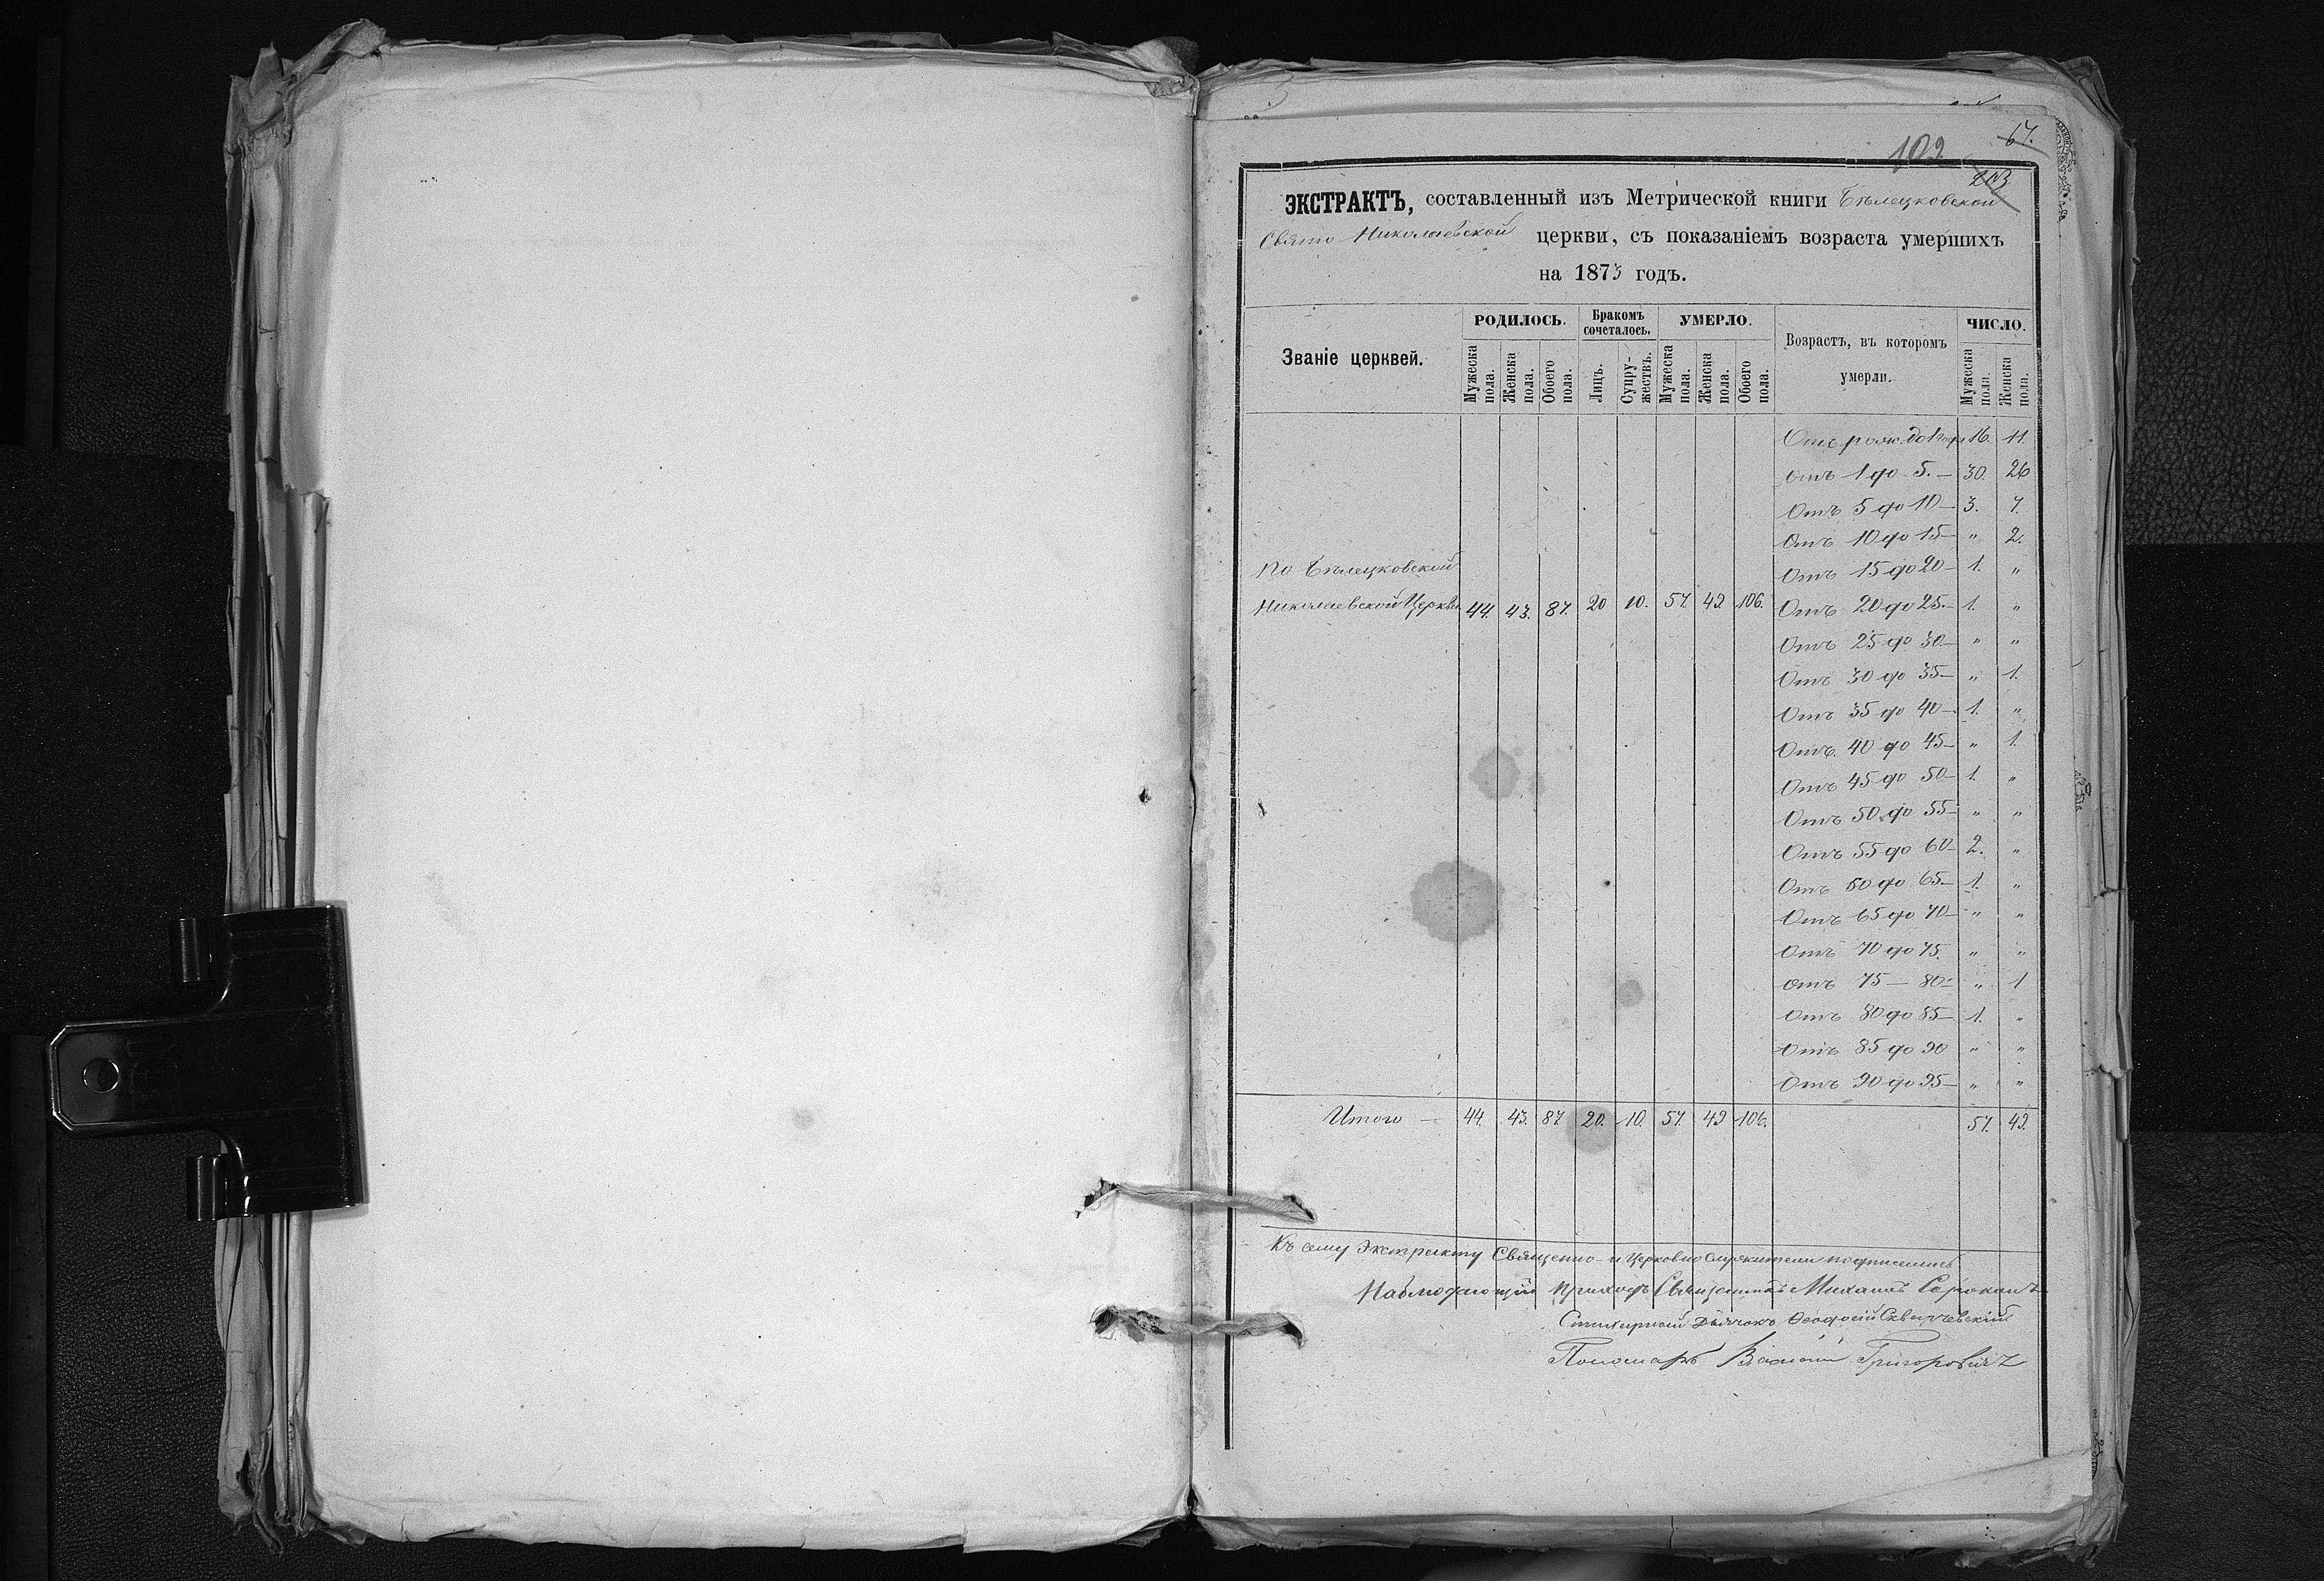 102
67.
203
ЭКСТРАКТЪ, составленный изъ Метрической книги Бѣлецковской
Свято Николаевской церкви, съ показаніемъ возраста умершихъ
на 1873 годъ.
Званіе церквей. РОДИЛОСЬ. Бракомъ сочеталось. УМЕРЛО. Возрастъ, въ которомъ умерли. ЧИСЛО.
Мужеска пола. Женска пола. Обоего пола. Лицъ. Супружествъ. Мужеска пола. Женска пола. Обоего пола. Мужеска пола. Женска пола.
Отъ рож. до 1 года 16. 11.
отъ 1 до 5. — 30. 26
Отъ 5 до 10 — 3. 7.
Отъ 10 до 15 — „ 2.
По Бѣлецковской Отъ 15 до 20 — 1. „
Николаевской Церкви 44. 43. 87. 20 10. 57. 49. 106. Отъ 20 до 25. — 1. „
Отъ 25 до 30 — „ „
Отъ 30 до 35 — „ 1.
Отъ 35 до 40 — 1. „
Отъ 40 до 45 — „ 1.
Отъ 45 до 50 — 1. „
Отъ 50 до 55 — „ „
Отъ 55 до 60 — 2. „
Отъ 60 до 65 — 1. „
Отъ 65 до 70 — „ „
Отъ 70 до 75. „ „
отъ 75 — 80 — „ 1
Отъ 80 до 85 — 1. „
Отъ 85 до 90 „ „
Отъ 90 до 95 — „ „
Итого — 44. 43. 87 20. 10. 57. 49 106. 57. 49.
Къ сему Экстракту Священно- и Церковно служители подписались
Наблюдающій приходъ Священникъ Михаилъ
Стихарный Дьячокъ Ѳеодосій
Пономарь Василій Григоровичъ